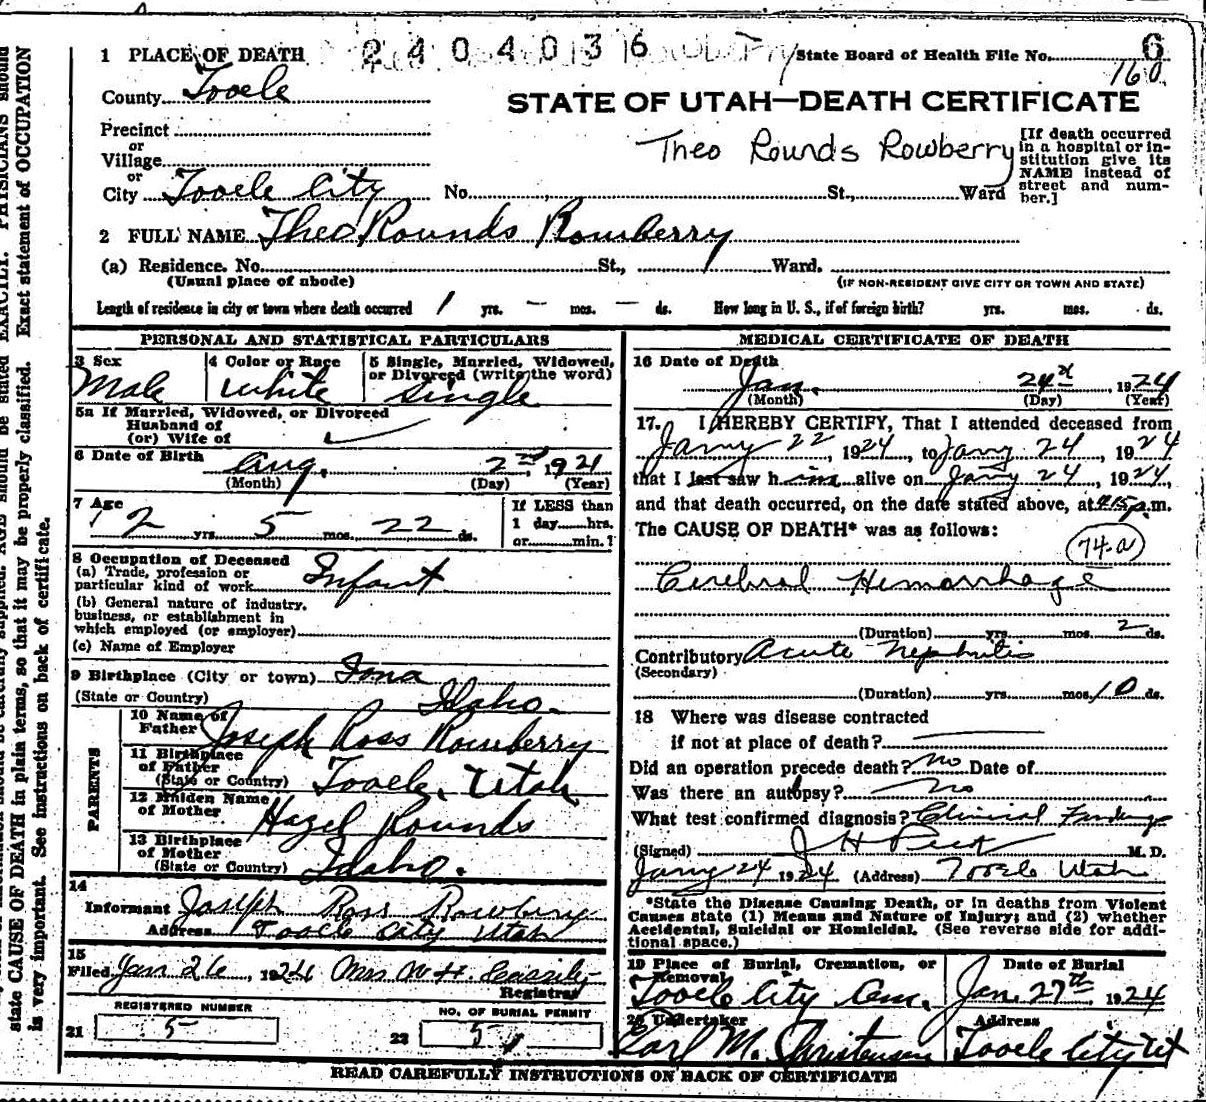 1 PLACE OF DEATH 2404036 State Board of Health File No. 6
160
County Tooele
STATE OF UTAH—DEATH CERTIFICATE
Precinct
or
Village
or
City Tooele City No. St., Ward
Theo Rounds Rowberry
[If death occurred in a hospital or in-
stitution give its
NAME instead of
street and num-
ber.]
2 FULL NAME Theo Rounds Rowberry
(a) Residence. No. St., Ward.
(Usual place of abode) (IF NON-RESIDENT GIVE CITY OR TOWN AND STATE)
Length of residence in city or town where death occurred 1 yrs. — mos. — ds. How long in U. S., if of foreign birth? yrs. mos. ds.
PERSONAL AND STATISTICAL PARTICULARS
3 Sex Male
4 Color or Race White
5 Single, Married, Widowed,
or Divorced (write the word)
Single
5a If Married, Widowed, or Divorced
Husband of
(or) Wife of
6 Date of Birth Aug. 2nd, 1921
(Month) (Day) (Year)
7 Age
2 yrs. 5 mos. 22 ds.
If LESS than
1 day hrs.
or min.?
8 Occupation of Deceased
(a) Trade, profession or
particular kind of work Infant
(b) General nature of industry,
business, or establishment in
which employed (or employer)
(c) Name of Employer
9 Birthplace (City or town) Iona
(State or Country) Idaho.
PARENTS
10 Name of
Father Joseph Ross Rowberry
11 Birthplace
of Father
(State or Country) Tooele, Utah
12 Maiden Name
of Mother Hazel Rounds
13 Birthplace
of Mother
(State or Country) Idaho.
14
Informant Joseph Ross Rowberry
Address Tooele City Utah
15
Filed Jan 26, 1924 Mrs W. H. Cassity
Registrar
REGISTERED NUMBER
21 5
NO. OF BURIAL PERMIT
22 5
MEDICAL CERTIFICATE OF DEATH
16 Date of Death
Jan. 24th, 1924
(Month) (Day) (Year)
17. I HEREBY CERTIFY, That I attended deceased from
Jany 22, 1924, to Jany 24, 1924
that I last saw him alive on Jany 24, 1924,
and that death occurred, on the date stated above, at p.m.
The CAUSE OF DEATH* was as follows:
74-a
Cerebral Hemorrhage
(Duration) yrs. mos. 2 ds.
Contributory Acute Nephritis
(Secondary)
(Duration) yrs. mos. 10 ds.
18 Where was disease contracted
if not at place of death?
Did an operation precede death? No Date of
Was there an autopsy? No
What test confirmed diagnosis? Clinical Findings
(Signed) J H Peck M. D.
Jany 24 1924 (Address) Tooele Utah
*State the Disease Causing Death, or in deaths from Violent
Causes state (1) Means and Nature of Injury; and (2) whether
Accidental, Suicidal or Homicidal. (See reverse side for addi-
tional space.)
19 Place of Burial, Cremation, or
Removal
Tooele City Cem.
Date of Burial
Jan. 27th, 1924
20 Undertaker
Carl M. Christensen
Address
Tooele City Ut
READ CAREFULLY INSTRUCTIONS ON BACK OF CERTIFICATE
state CAUSE OF DEATH in plain terms, so that it may be properly classified. Exact statement of OCCUPATION
is very important. See instructions on back of certificate.